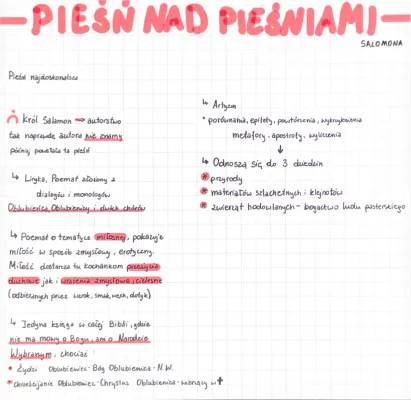 PIEŚŃ NAD PIEŚNIAMI
SALOMONA
Pieśń najdoskonalsza
Król Salomon → autorstwo
tak naprawdę autora nie znamy
później powstała ta pieśń
↳ Liryka, Poemat złożony z
dialogów i monologów
Oblubieńca, Oblubienicy i dwóch chórów
↳ Poemat o tematyce miłosnej, pokazuje
miłość w sposób zmysłowy, erotyczny.
Miłość dostarcza tu kochankom przeżycia
duchowe jak i wrażenia zmysłowe, cielesne
(odbieranych przez wzrok, smak, węch, dotyk)
↳ Jedyna księga w całej Biblii, gdzie
nie ma mowy o Bogu, ani o Narodzie
Wybranym, chociaż:
• Żydzi Oblubieniec-Bóg Oblubienica-N.W.
• chrześcijanie Oblubieniec-Chrystus Oblubienica-wierzący w ✝
↳ Artyzm
• porównania, epitety, powtórzenia, wykrzyknienia
metafory, apostrofy, wyliczenia
↓
↳ Odnoszą się do 3 dziedzin
przyrody
materiałów szlachetnych i klejnotów
zwierząt hodowlanych - bogactwo ludu pasterskiego